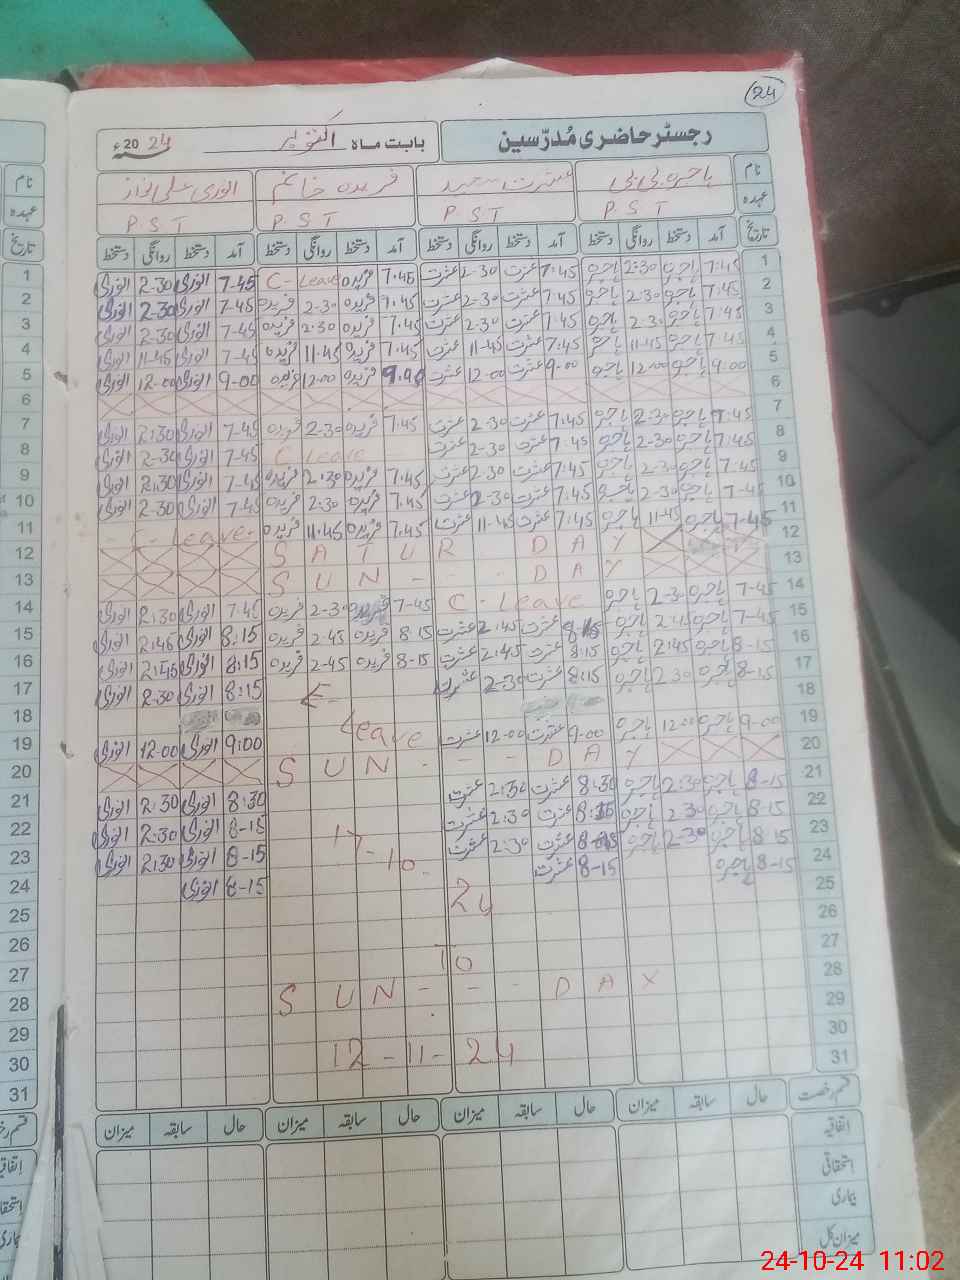 24
رجسٹر حاضری مُدرّسین
بابت ماہ اکتوبر 2024ء
نام ہاجرہ بی بی عشرت سعید فریدہ خانم انوری علی نواز
عہدہ P.S.T P.S.T P.S.T P.S.T
تاریخ آمد دستخط روانگی دستخط آمد دستخط روانگی دستخط آمد دستخط روانگی دستخط آمد دستخط روانگی دستخط
1 7:45 ہاجرہ 2:30 ہاجرہ 7:45 عشرت 2-30 عشرت 7.45 فریدہ C-Leave 7-45 انوری 2-30 انوری
2 7:45 ہاجرہ 2:30 ہاجرہ 7:45 عشرت 2-30 عشرت 7.45 فریدہ 2-30 فریدہ 7-45 انوری 2-30 انوری
3 7:45 ہاجرہ 2-30 ہاجرہ 7:45 عشرت 2-30 عشرت 7.45 فریدہ 2:30 فریدہ 7-45 انوری 2-30 انوری
4 7-45 ہاجرہ 11-45 ہاجرہ 7:45 عشرت 11-45 عشرت 7.45 فریدہ 11.45 فریدہ 7-45 انوری 11-45 انوری
5 9:00 ہاجرہ 12-00 ہاجرہ 9.00 عشرت 12-00 عشرت 9.00 فریدہ 12.00 فریدہ 9-00 انوری 12-00 انوری
6
7 7-45 ہاجرہ 2:30 ہاجرہ 7:45 عشرت 2-30 عشرت 7.45 فریدہ 2-30 فریدہ 7-45 انوری 2:30 انوری
8 7:45 ہاجرہ 2-30 ہاجرہ 7.45 عشرت 2-30 عشرت C Leave 7-45 انوری 2-30 انوری
9 7-45 ہاجرہ 2-30 ہاجرہ 7:45 عشرت 2-30 عشرت 7.45 فریدہ 2:30 فریدہ 7-45 انوری 2:30 انوری
10 7-45 ہاجرہ 2-30 ہاجرہ 7:45 عشرت 2-30 عشرت 7.45 فریدہ 2:30 فریدہ 7-45 انوری 2-30 انوری
11 7-45 ہاجرہ 11-45 ہاجرہ 7:45 عشرت 11-45 عشرت 7.45 فریدہ 11.45 فریدہ - C-Leave-
12 S A T U R D A Y
13 S U N - - D A Y
14 7-45 ہاجرہ 2-30 ہاجرہ C-Leave 7-45 2-30 فریدہ 7-45 انوری 2:30 انوری
15 7-45 ہاجرہ 2:45 ہاجرہ عشرت 2:45 عشرت 8-15 فریدہ 2-45 فریدہ 8:15 انوری 2:45 انوری
16 8-15 ہاجرہ 2:45 ہاجرہ 8:15 عشرت 2:45 عشرت 8-15 فریدہ 2-45 فریدہ 8:15 انوری 2:45 انوری
17 8-15 ہاجرہ 2-30 ہاجرہ 8:15 عشرت 2-30 عشرت E- 8:15 انوری 2:30 انوری
18 Leave
19 9-00 ہاجرہ 12-00 ہاجرہ 9-00 عشرت 12-00 عشرت 9:00 انوری 12-00 انوری
20 S U N - - - D A Y
21 8-15 ہاجرہ 2:30 ہاجرہ 8:30 عشرت 2:30 عشرت 8:30 انوری 2:30 انوری
22 8:15 ہاجرہ 2-30 ہاجرہ عشرت 2:30 عشرت 8-15 انوری 2:30 انوری
23 8:15 ہاجرہ 2-30 ہاجرہ عشرت 2:30 عشرت 17-10. 8-15 انوری 2:30 انوری
24 8-15 ہاجرہ 8-15 عشرت 24 8-15 انوری
25
26
27 To
28 S U N - - - D A Y
29
30 12-11-24
31
قسم رخصت حال سابقہ میزان حال سابقہ میزان حال سابقہ میزان حال سابقہ میزان
اتفاقیہ
استحقاقی
بیماری
میزان کل
24-10-24 11:02